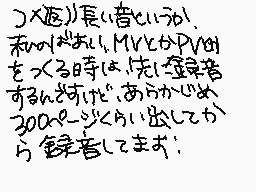 コメ返》長い音というか、
私のばあい、MVとかPV的
をつくる時は、先に録音
するんですけど、あらかじめ
300ページくらい出してか
ら録音してます。